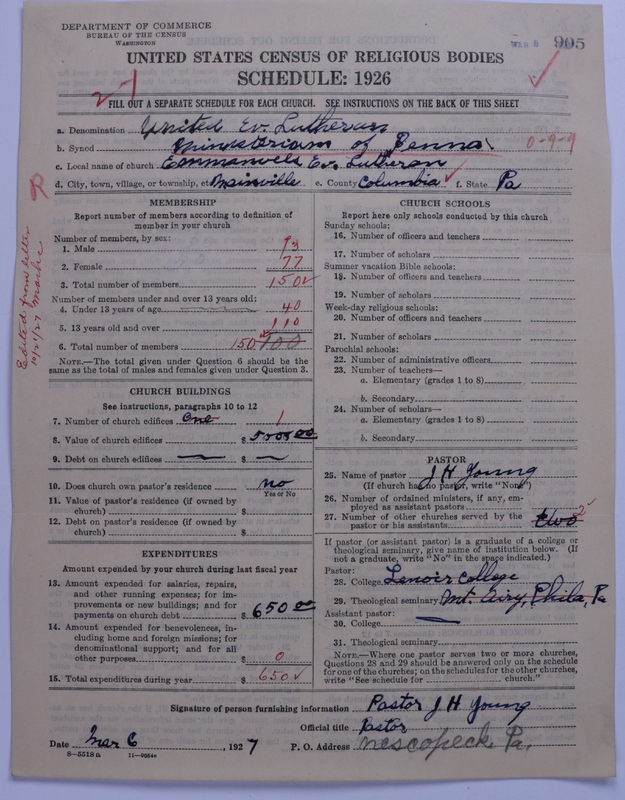 DEPARTMENT OF COMMERCE
BUREAU OF THE CENSUS
WASHINGTON
MAR 8 905
UNITED STATES CENSUS OF RELIGIOUS BODIES
SCHEDULE: 1926
FILL OUT A SEPARATE SCHEDULE FOR EACH CHURCH. SEE INSTRUCTIONS ON THE BACK OF THIS SHEET
a. Denomination United Ev. Lutheran
b. Synod Ministerium of Penna. 0-9-9
c. Local name of church Emmanuels Ev. Lutheran
d. City, town, village, or township, etc Mainville e. County Columbia f. State Pa
Edited from letter
10/21/27
MEMBERSHIP
Report number of members according to definition of
member in your church
Number of members, by sex:
1. Male 73
2. Female 77
3. Total number of members 150
Number of members under and over 13 years old:
4. Under 13 years of age 40
5. 13 years old and over 110
6. Total number of members 150 100
NOTE.—The total given under Question 6 should be the
same as the total of males and females given under Question 3.
CHURCH BUILDINGS
See instructions, paragraphs 10 to 12
7. Number of church edifices one 1
8. Value of church edifices $ 5000 00
9. Debt on church edifices $
10. Does church own pastor's residence no
Yes or No
11. Value of pastor's residence (if owned by
church) $
12. Debt on pastor's residence (if owned by
church) $
EXPENDITURES
Amount expended by your church during last fiscal year
13. Amount expended for salaries, repairs,
and other running expenses; for im-
provements or new buildings; and for
payments on church debt $ 650 00
14. Amount expended for benevolences, in-
cluding home and foreign missions; for
denominational support; and for all
other purposes $ 0
15. Total expenditures during year $ 650
CHURCH SCHOOLS
Report here only schools conducted by this church
Sunday schools:
16. Number of officers and teachers
17. Number of scholars
Summer vacation Bible schools:
18. Number of officers and teachers
19. Number of scholars
Week-day religious schools:
20. Number of officers and teachers
21. Number of scholars
Parochial schools:
22. Number of administrative officers
23. Number of teachers—
a. Elementary (grades 1 to 8)
b. Secondary
24. Number of scholars—
a. Elementary (grades 1 to 8)
b. Secondary
PASTOR
25. Name of pastor J H Young
(If church has no pastor, write "None")
26. Number of ordained ministers, if any, em-
ployed as assistant pastors
27. Number of other churches served by the
pastor or his assistants two 2
If pastor (or assistant pastor) is a graduate of a college or
theological seminary, give name of institution below. (If
not a graduate, write "No" in the space indicated.)
Pastor:
28. College Lenoir College
29. Theological seminary Mt. Airy, Phila, Pa
Assistant pastor:
30. College
31. Theological seminary
NOTE.—Where one pastor serves two or more churches,
Questions 28 and 29 should be answered only on the schedule
for one of the churches; on the schedules for the other churches,
write "See schedule for church."
Signature of person furnishing information Pastor J H Young
Official title Pastor
Date Mar 6, 1927 P. O. Address Nescopeck Pa.
8—5518a 11—9084